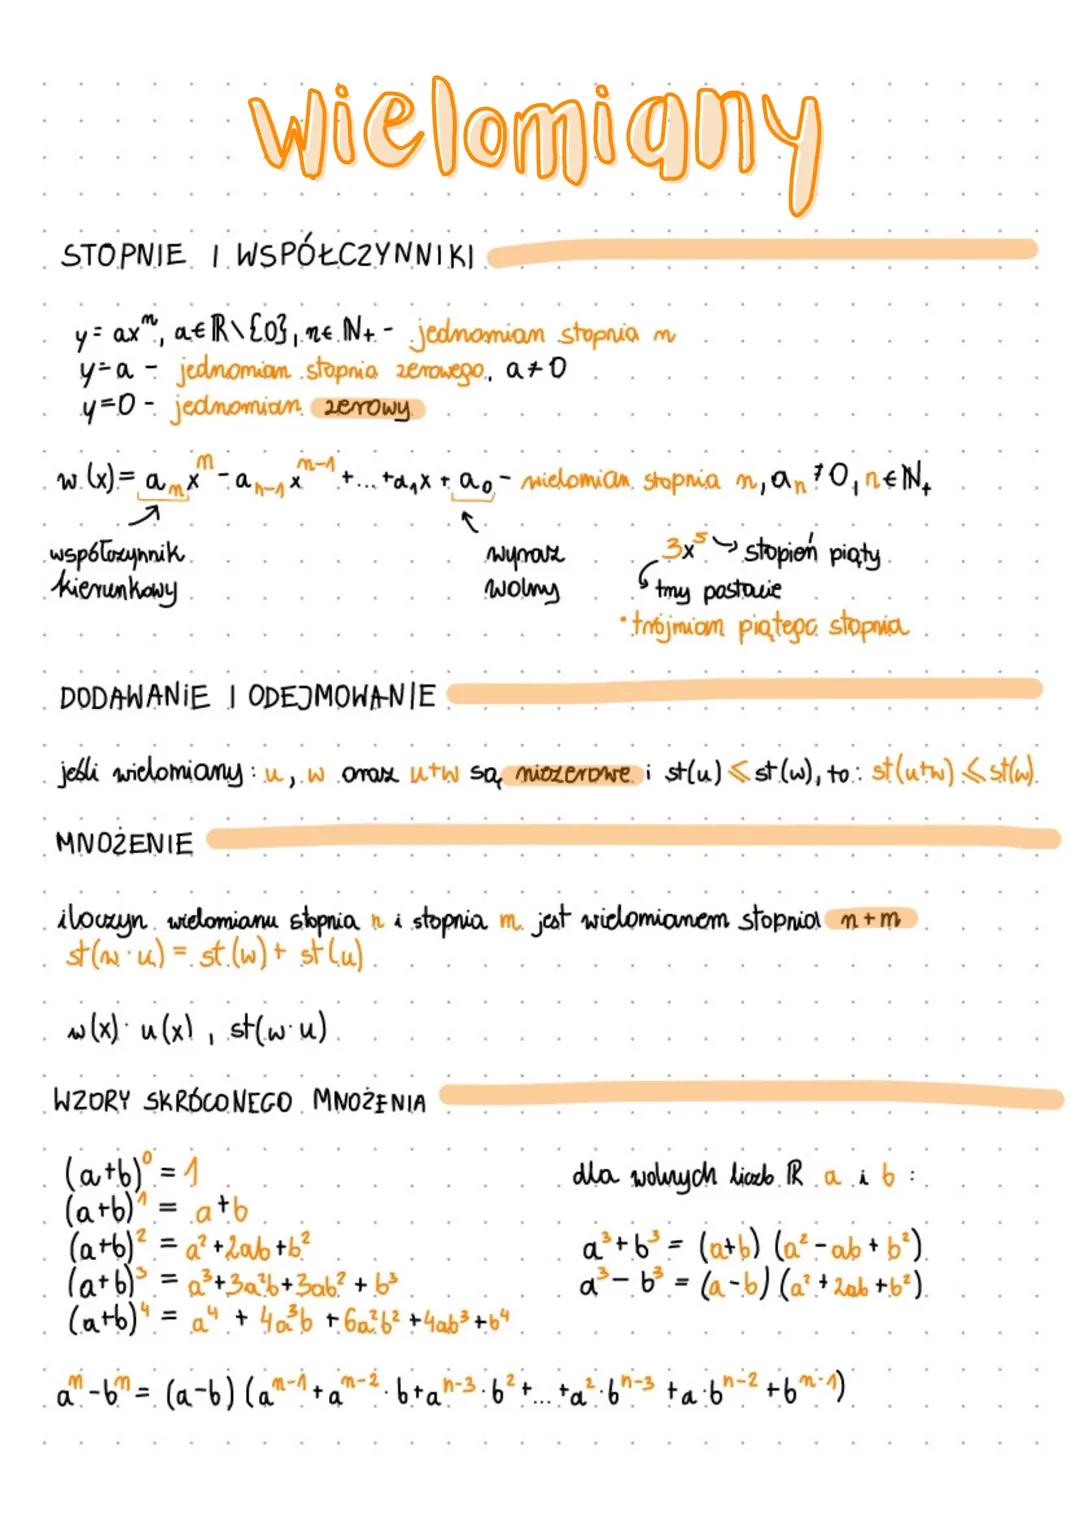 wielomiany
STOPNIE I WSPÓŁCZYNNIKI
y = axⁿ, a∈ℝ\{0}, n∈ℕ₊ - jednomian stopnia n
y=a - jednomian stopnia zerowego, a≠0
y=0 - jednomian zerowy
w(x) = aₙxⁿ - aₙ₋₁xⁿ⁻¹ + ... + a₁x + a₀ - wielomian stopnia n, aₙ ≠ 0, n∈ℕ₊
współczynnik kierunkowy
wyraz wolny
3x⁵ → stopień piąty
trzy postacie
• trójmian piątego stopnia
DODAWANIE I ODEJMOWANIE
jeśli wielomiany: u, w oraz u+w są niezerowe i st(u) ≤ st(w), to: st(u+w) ≤ st(w).
MNOŻENIE
iloczyn wielomianu stopnia n i stopnia m jest wielomianem stopnia n+m
st(w·u) = st(w) + st(u)
w(x)·u(x), st(w·u)
WZORY SKRÓCONEGO MNOŻENIA
(a+b)⁰ = 1
(a+b)¹ = a+b
(a+b)² = a²+2ab+b²
(a+b)³ = a³+3a²b+3ab²+b³
(a+b)⁴ = a⁴ + 4a³b + 6a²b² + 4ab³ + b⁴
dla wolnych liczb ℝ a i b:
a³+b³ = (a+b)(a²-ab+b²)
a³-b³ = (a-b)(a²+2ab+b²)
aⁿ-bⁿ = (a-b)(aⁿ⁻¹+aⁿ⁻²·b+aⁿ⁻³·b²+...+a²·bⁿ⁻³+a·bⁿ⁻²+bⁿ⁻¹)